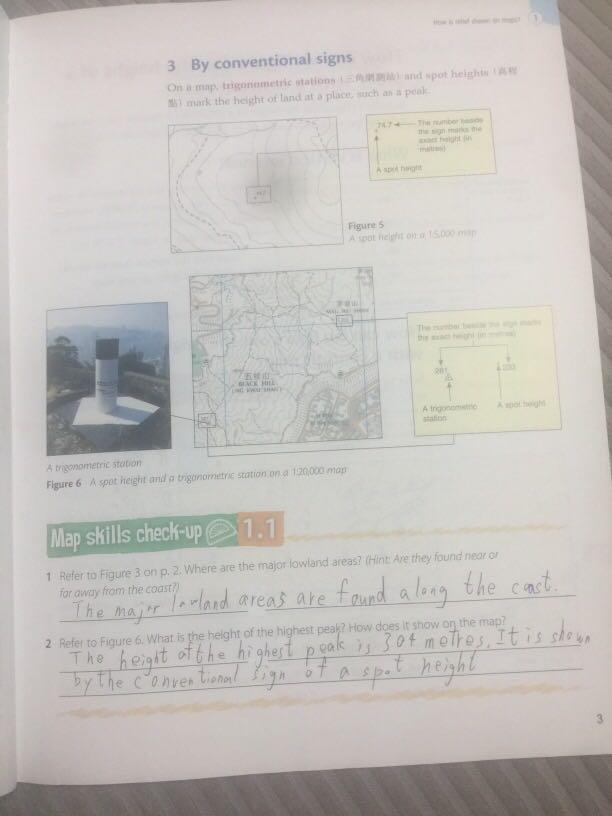 How is relief shown on maps? 1
3 By conventional signs
On a map, trigonometric stations (三角網測站) and spot heights (高程
點) mark the height of land at a place, such as a peak.
74.7
The number beside
the sign marks the
exact height (in
metres)
A spot height
Figure 5
A spot height on a 1:5,000 map
BLACK HILL
The number beside the sign marks
the exact height (in metres)
281
A trigonometric
station
A spot height
A trigonometric station
Figure 6 A spot height and a trigonometric station on a 1:20,000 map
Map skills check-up 1.1
1 Refer to Figure 3 on p. 2. Where are the major lowland areas? (Hint: Are they found near or
far away from the coast?)
The major lowland areas are found along the coast.
2 Refer to Figure 6. What is the height of the highest peak? How does it show on the map?
The height of the highest peak is 304 metres. It is shown
by the conventional sign of a spot height
3